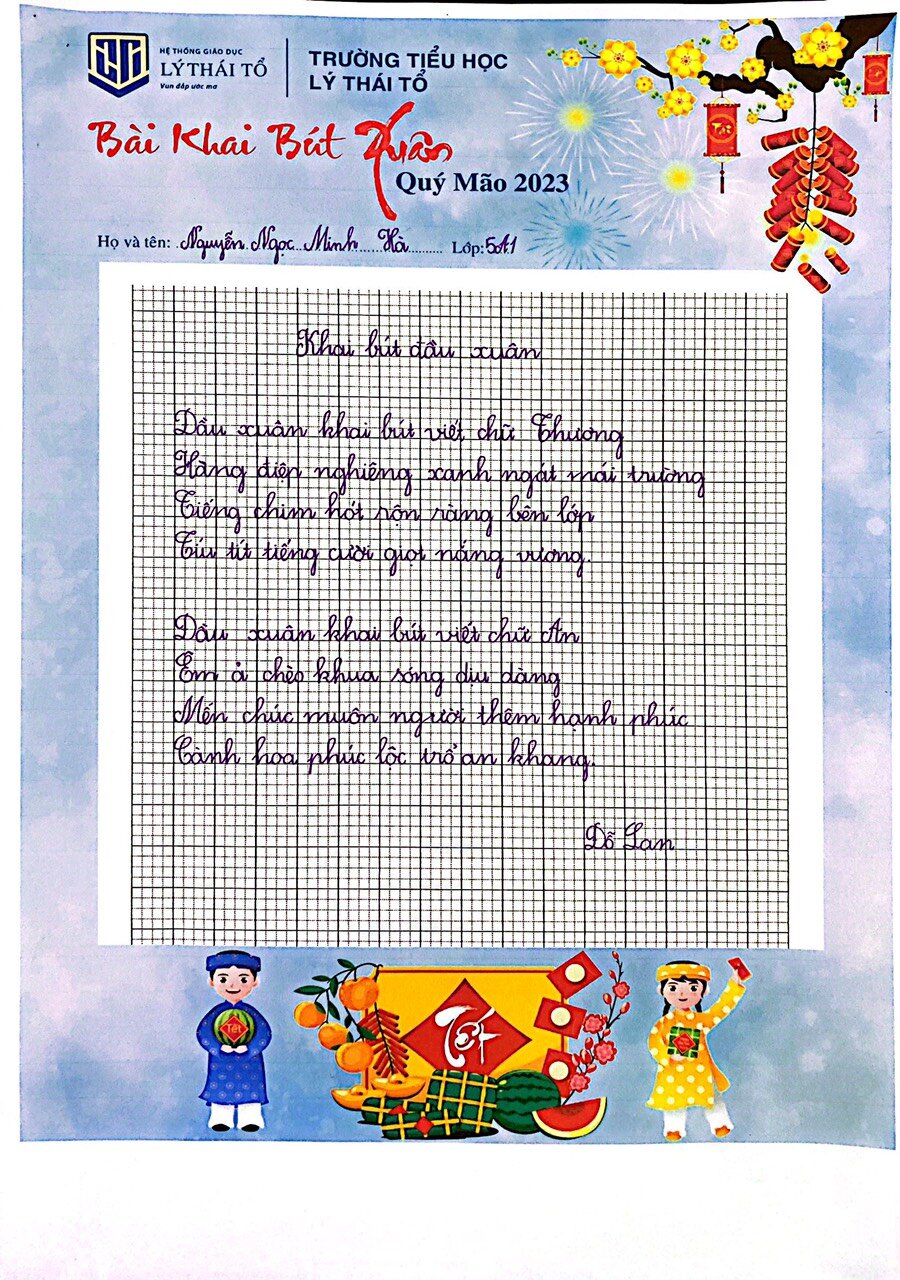 HỆ THỐNG GIÁO DỤC
LÝ THÁI TỔ
Vun đắp ước mơ
TRƯỜNG TIỂU HỌC
LÝ THÁI TỔ
Bài Khai Bút Xuân
Quý Mão 2023
Họ và tên: Nguyễn Ngọc Minh Hà Lớp: 5A1
Khai bút đầu xuân
Đầu xuân khai bút viết chữ Thương
Hàng điệp nghiêng xanh ngát mái trường
Tiếng chim hót rộn ràng bên lớp
Tíu tít tiếng cười giọt nắng vương.
Đầu xuân khai bút viết chữ An
Êm ả chèo khua sóng dịu dàng
Mến chúc muôn người thêm hạnh phúc
Cành hoa phúc lộc trổ an khang.
Đỗ Lan
Tết
Tết